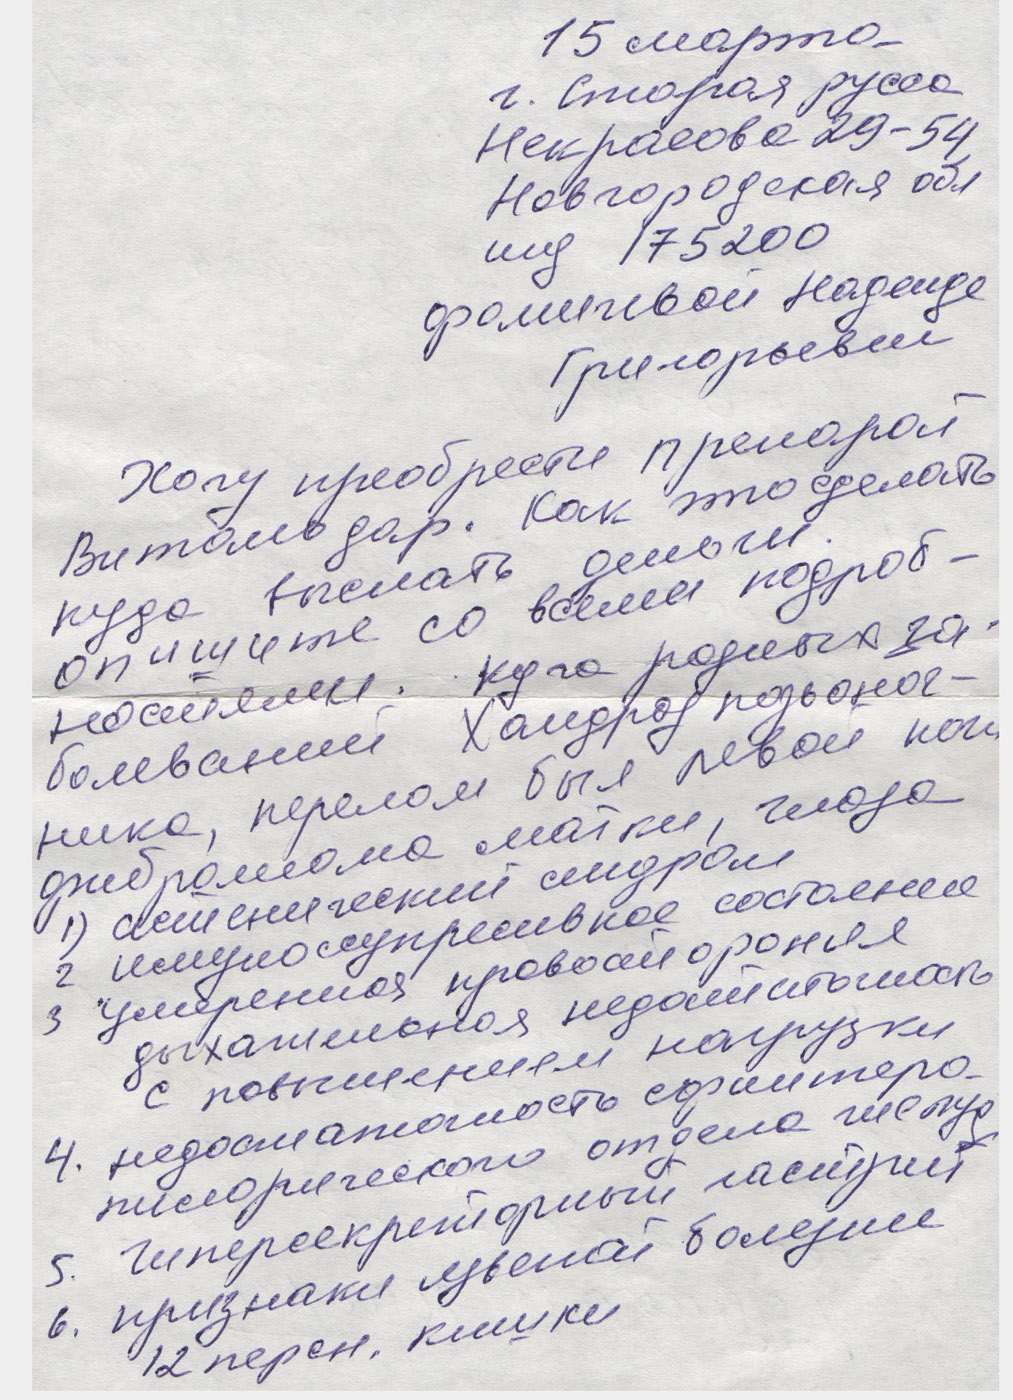 15 марта
г. Старая русса
Некрасова 29-54
Новгородская обл
инд 175200
Фомичёвой Надежде
Григорьевне
Хочу преобрести препарат
Витальдар. Как это сделать
куда выслать деньги.
опишите со всеми подроб-
ностями. куча разных за-
болеваний Хандроз позвоноч-
ника, перелом был левой ноги
фибромиома матки, глаза
1) астенический синдром
2 имуносупресивное состояние
3 "умеренная правосторонняя
дыхательная недостаточность
с повышением нагрузки
4. недостаточность сфинтера
пилорического отдела желуд
5. Гиперсекреторный гастрит
6. признаки язвеной болезни
12 персн. кишки